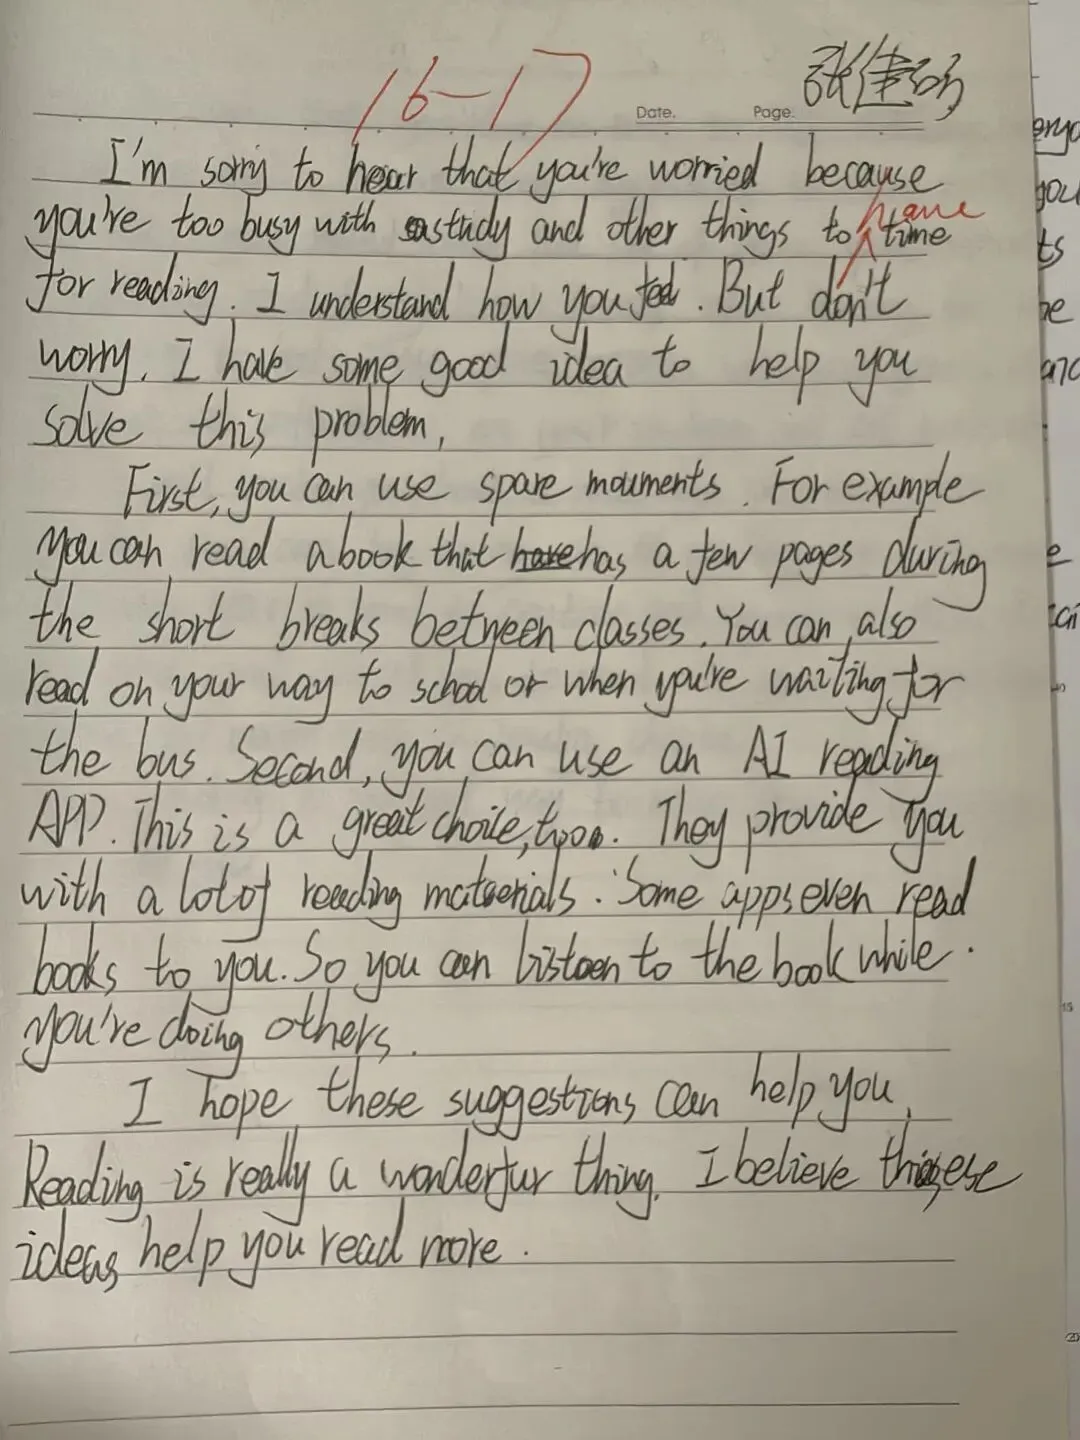 16-17
张建
Date. Page.
I'm sorry to hear that you're worried because
you're too busy with study and other things to have time
for reading. I understand how you feel. But don't
worry. I have some good idea to help you
solve this problem.
First, you can use spare mouments. For example
you can read a book that has a few pages during
the short breaks between classes. You can also
read on your way to school or when you're waiting for
the bus. Second, you can use an AI reading
APP. This is a great choice, too. They provide you
with a lot of reading materials. Some apps even read
books to you. So you can listen to the book while
you're doing others.
I hope these suggestions can help you.
Reading is really a wonderfur thing. I believe these
ideas help you read more.